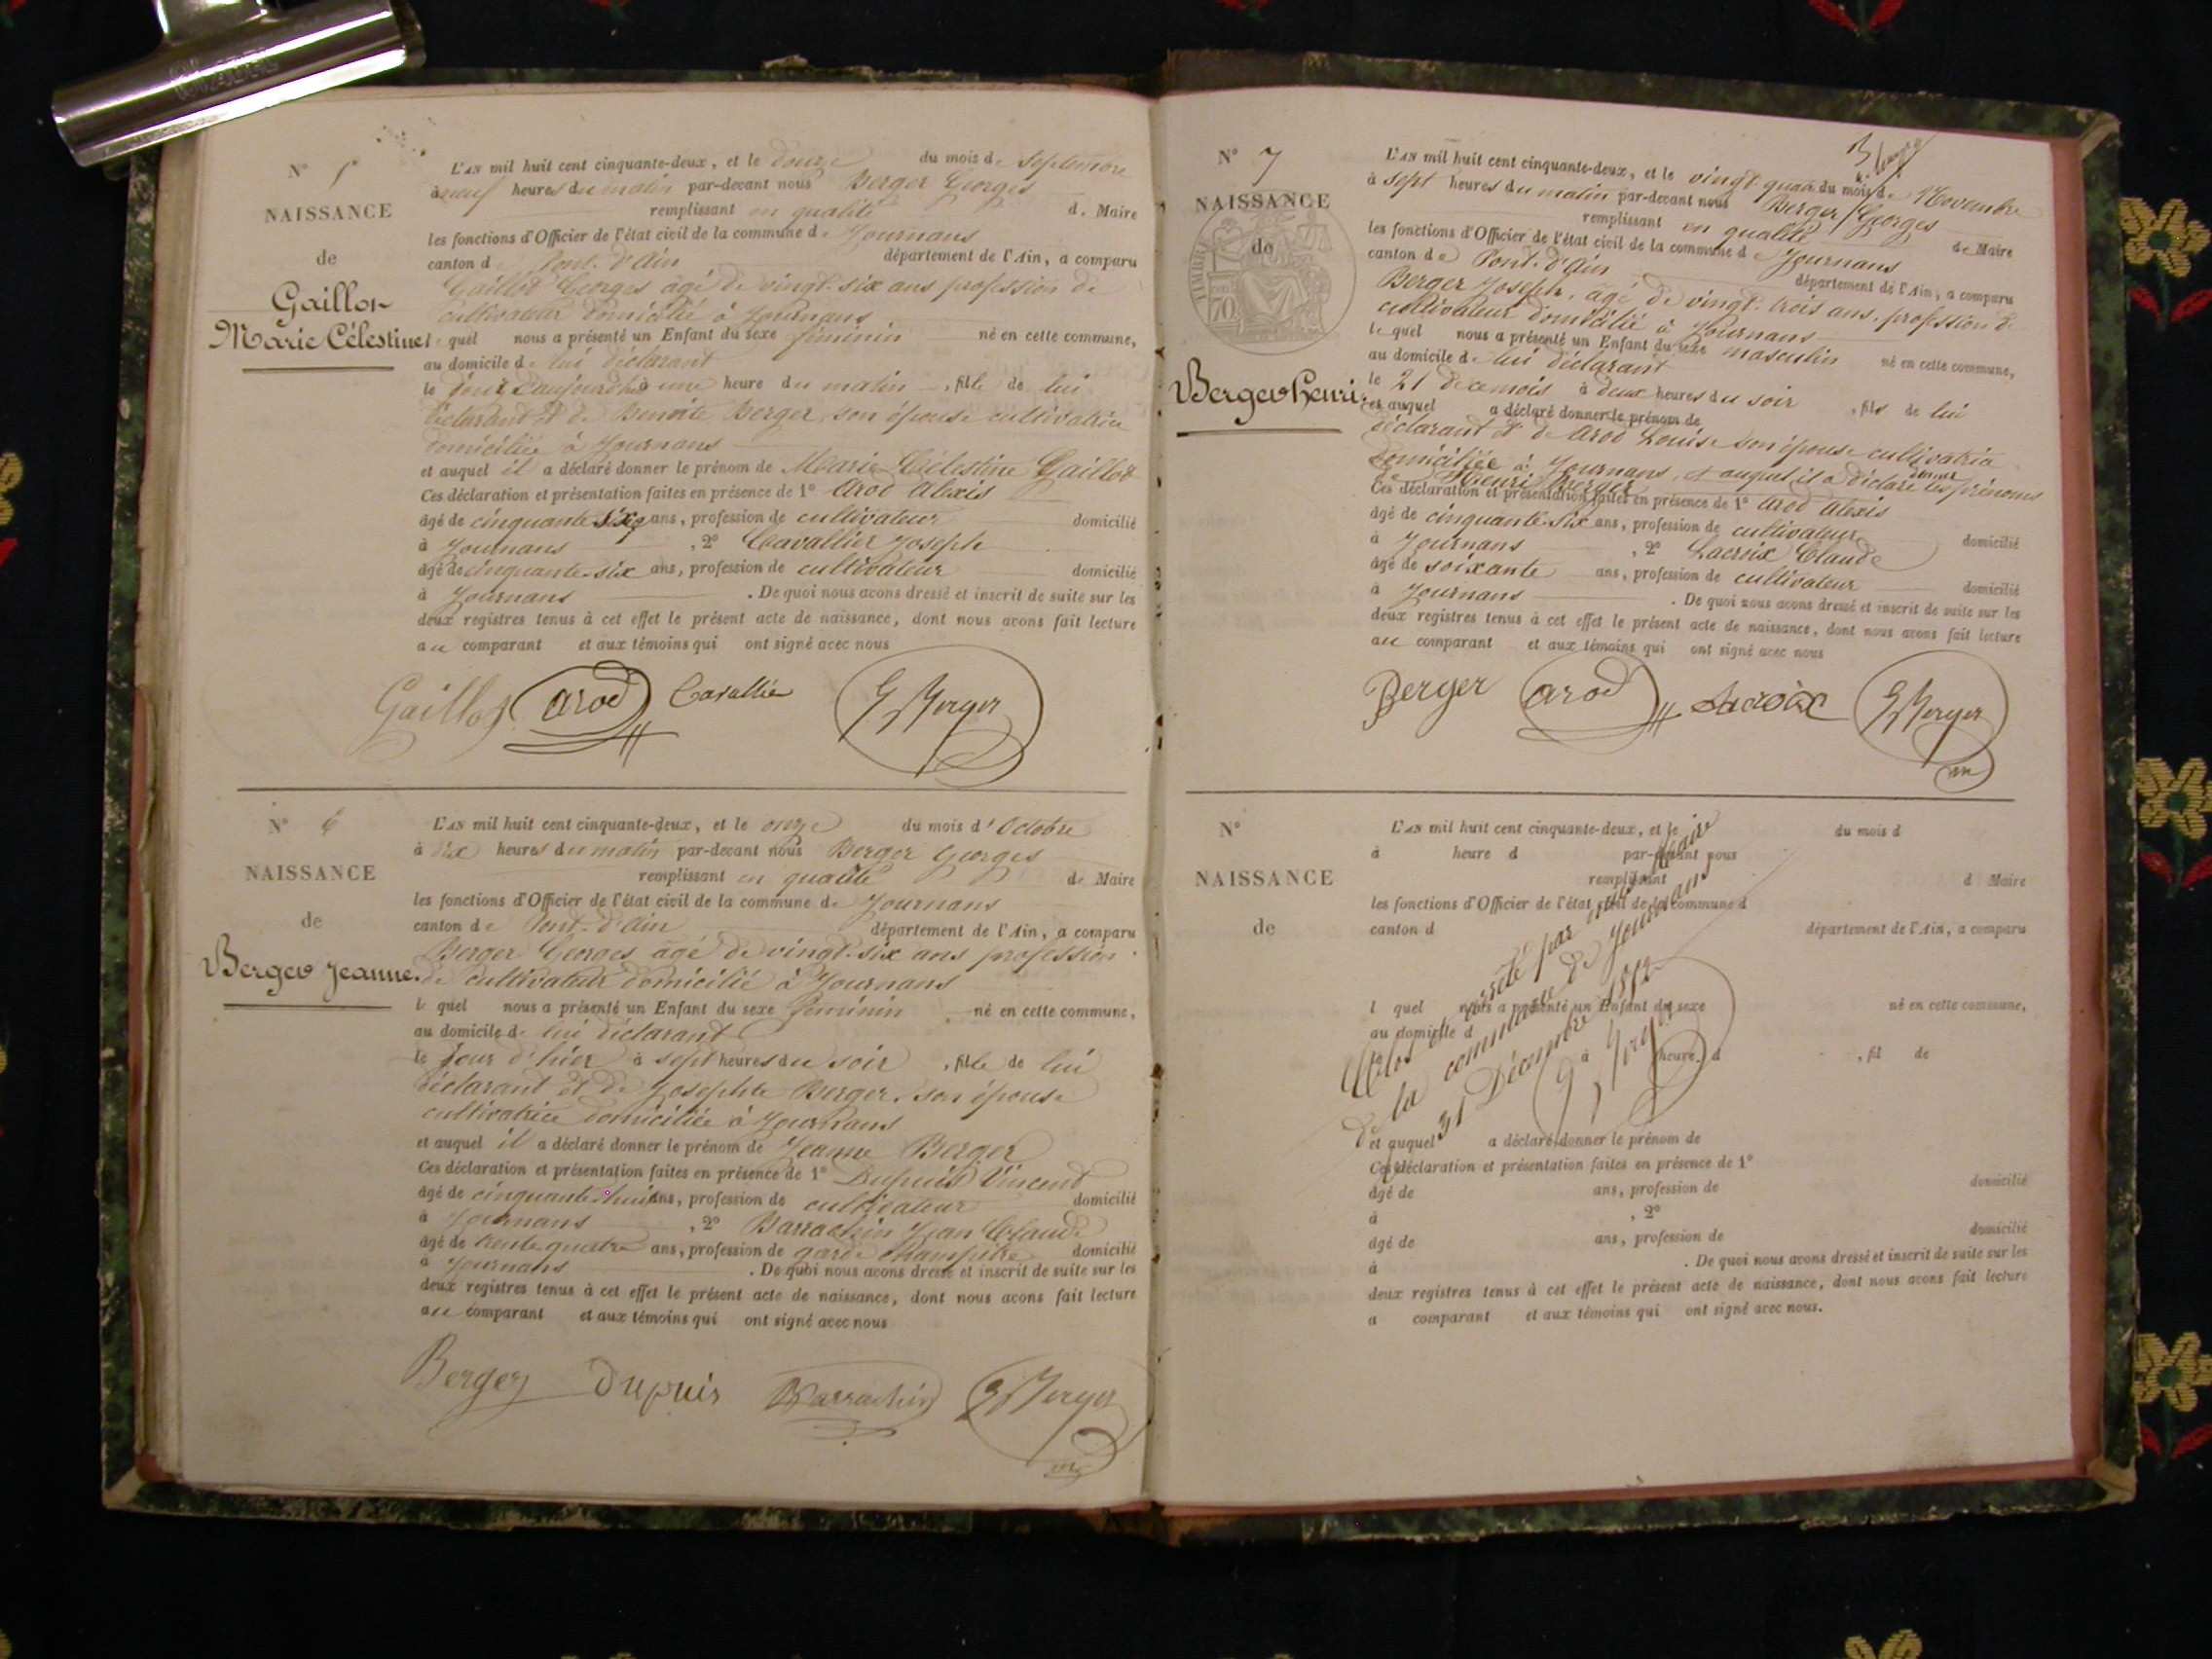 N° 5
NAISSANCE
de
Gaillot
Marie Célestine
L'AN mil huit cent cinquante-deux, et le douze du mois de Septembre
à neuf heures du matin par-devant nous Berger Georges
remplissant en qualité de Maire
les fonctions d'Officier de l'état civil de la commune de Journans
canton de Pont-d'Ain département de l'Ain, a comparu
Gaillot Georges agé de vingt-six ans profession de
cultivateur domicilié à Journans
lequel nous a présenté un Enfant du sexe féminin né en cette commune,
au domicile de lui déclarant
le jour d'aujourd'hui à une heure du matin, fille de lui
déclarant et de Benoite Berger, son épouse cultivatrice
domiciliée à Journans
et auquel il a déclaré donner le prénom de Marie Célestine Gaillot
Ces déclaration et présentation faites en présence de 1° Arod Alexis
âgé de cinquante six ans, profession de cultivateur domicilié
à Journans, 2° Cavallier Joseph
âgé de cinquante-six ans, profession de cultivateur domicilié
à Journans. De quoi nous avons dressé et inscrit de suite sur les
deux registres tenus à cet effet le présent acte de naissance, dont nous avons fait lecture
au comparant et aux témoins qui ont signé avec nous
Gaillot Arod Cavallier G Berger
N° 6
NAISSANCE
de
Berger Jeanne.
L'AN mil huit cent cinquante-deux, et le onze du mois d'Octobre
à dix heures du matin par-devant nous Berger Georges
remplissant en qualité de Maire
les fonctions d'Officier de l'état civil de la commune de Journans
canton de Pont-d'Ain département de l'Ain, a comparu
Berger Georges agé de vingt-six ans profession
de cultivateur domicilié à Journans
lequel nous a présenté un Enfant du sexe féminin né en cette commune,
au domicile de lui déclarant
le jour d'hier à sept heures du soir, fille de lui
déclarant et de Josephte Berger, son épouse
cultivatrice domiciliée à Journans
et auquel il a déclaré donner le prénom de Jeanne Berger
Ces déclaration et présentation faites en présence de 1° Dupuis Vincent
âgé de cinquante-huit ans, profession de cultivateur domicilié
à Journans, 2° Barrachin Jean Claude
âgé de trente-quatre ans, profession de garde champêtre domicilié
à Journans. De quoi nous avons dressé et inscrit de suite sur les
deux registres tenus à cet effet le présent acte de naissance, dont nous avons fait lecture
au comparant et aux témoins qui ont signé avec nous
Berger Dupuis Barrachin G Berger
N° 7
NAISSANCE
de
TIMBRE
70
Berger Henri.
L'AN mil huit cent cinquante-deux, et le vingt-quatre du mois de Novembre
à sept heures du matin par-devant nous Berger Georges
remplissant en qualité de Maire
les fonctions d'Officier de l'état civil de la commune de Journans
canton de Pont-d'Ain département de l'Ain, a comparu
Berger Joseph, agé de vingt-trois ans, profession de
cultivateur domicilié à Journans
lequel nous a présenté un Enfant du sexe masculin né en cette commune,
au domicile de lui déclarant
le 21 de ce mois à deux heures du soir, fils de lui
et auquel a déclaré donner le prénom de
déclarant et de Arod Louise son épouse cultivatrice
domiciliée à Journans, et auquel il a déclaré donner les prénoms
de Henri Berger
Ces déclaration et présentation faites en présence de 1° Arod Alexis
âgé de cinquante-six ans, profession de cultivateur domicilié
à Journans, 2° Lacroix Claude
âgé de soixante ans, profession de cultivateur domicilié
à Journans. De quoi nous avons dressé et inscrit de suite sur les
deux registres tenus à cet effet le présent acte de naissance, dont nous avons fait lecture
au comparant et aux témoins qui ont signé avec nous
Berger Arod Lacroix G Berger
N°
NAISSANCE
de
L'AN mil huit cent cinquante-deux, et le du mois d
à heure d par-devant nous
remplissant d Maire
les fonctions d'Officier de l'état civil de la commune d
canton d département de l'Ain, a comparu
l quel nous a présenté un Enfant du sexe né en cette commune,
au domicile d
à heure d, fil de
et auquel a déclaré donner le prénom de
Ces déclaration et présentation faites en présence de 1°
âgé de ans, profession de domicilié
à, 2°
âgé de ans, profession de domicilié
à. De quoi nous avons dressé et inscrit de suite sur les
deux registres tenus à cet effet le présent acte de naissance, dont nous avons fait lecture
a comparant et aux témoins qui ont signé avec nous.
Clos et arrêté par nous Maire
de la commune de Journans
31 Décembre 1852
G Berger